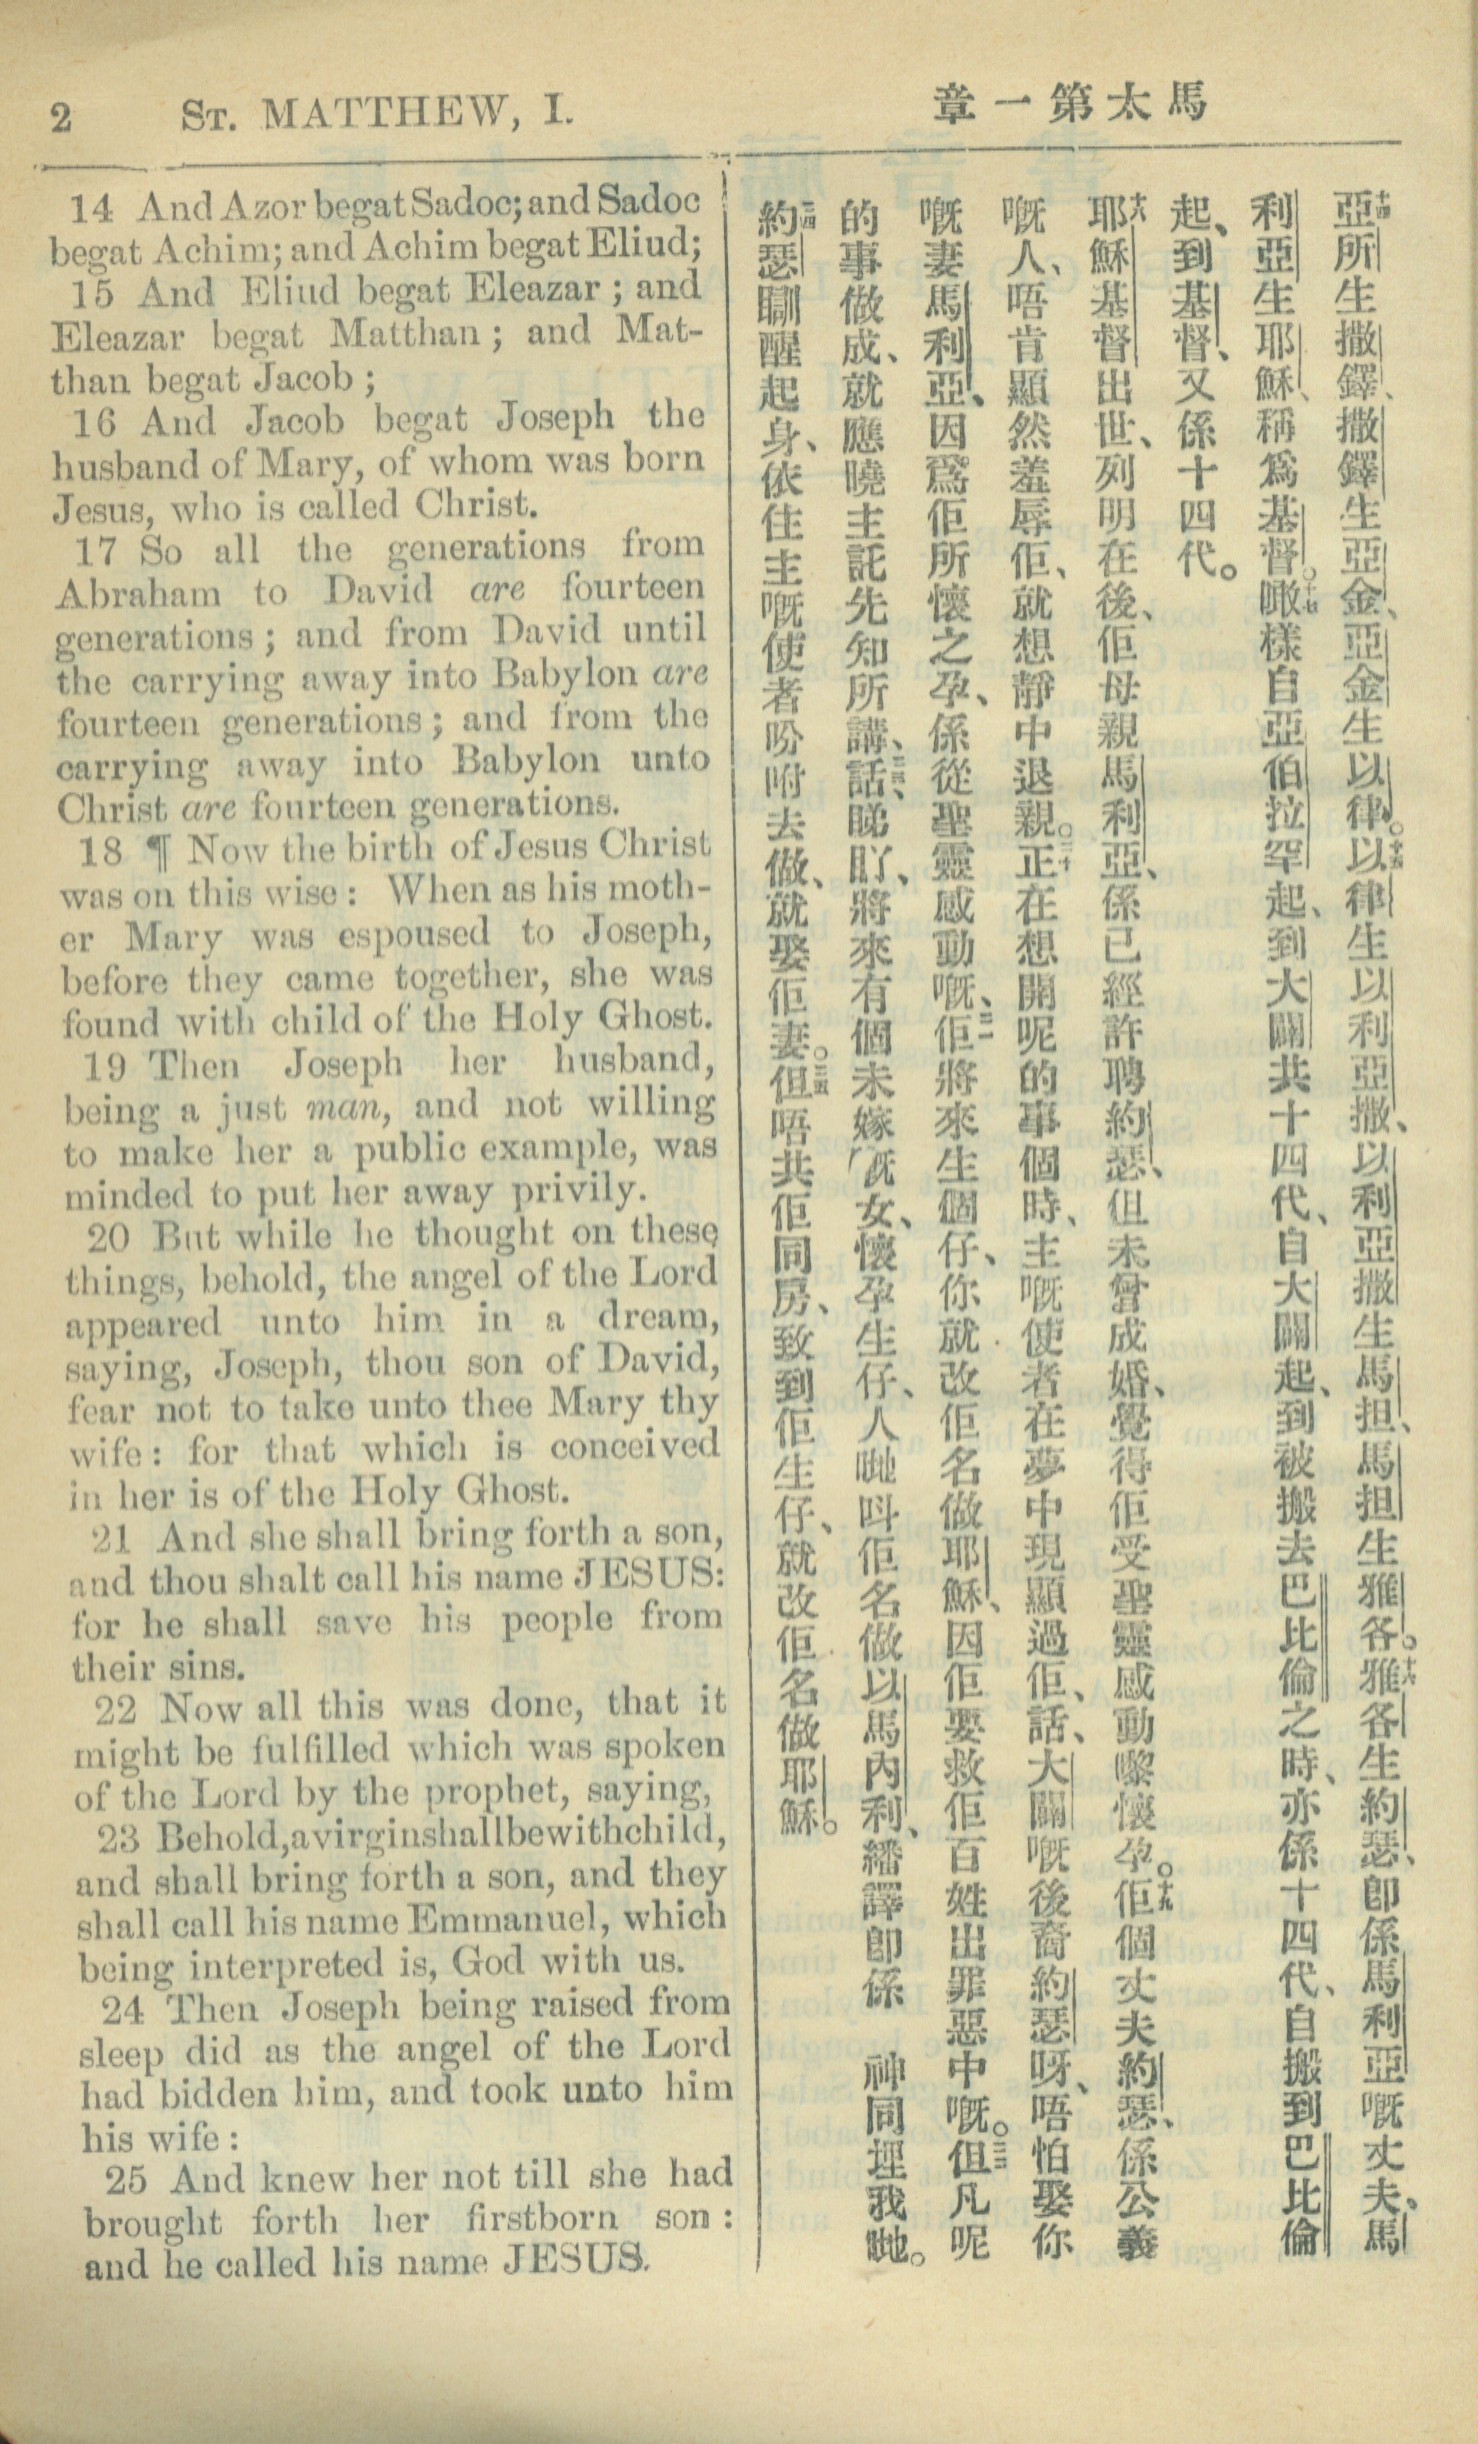 2 ST. MATTHEW, I.
章一第太馬
14 And Azor begat Sadoc; and Sadoc
begat Achim; and Achim begat Eliud;
15 And Eliud begat Eleazar; and
Eleazar begat Matthan; and Mat-
than begat Jacob;
16 And Jacob begat Joseph the
husband of Mary, of whom was born
Jesus, who is called Christ.
17 So all the generations from
Abraham to David are fourteen
generations; and from David until
the carrying away into Babylon are
fourteen generations; and from the
carrying away into Babylon unto
Christ are fourteen generations.
18 ¶ Now the birth of Jesus Christ
was on this wise: When as his moth-
er Mary was espoused to Joseph,
before they came together, she was
found with child of the Holy Ghost.
19 Then Joseph her husband,
being a just man, and not willing
to make her a public example, was
minded to put her away privily.
20 But while he thought on these
things, behold, the angel of the Lord
appeared unto him in a dream,
saying, Joseph, thou son of David,
fear not to take unto thee Mary thy
wife: for that which is conceived
in her is of the Holy Ghost.
21 And she shall bring forth a son,
and thou shalt call his name JESUS:
for he shall save his people from
their sins.
22 Now all this was done, that it
might be fulfilled which was spoken
of the Lord by the prophet, saying,
23 Behold, a virgin shall be with child,
and shall bring forth a son, and they
shall call his name Emmanuel, which
being interpreted is, God with us.
24 Then Joseph being raised from
sleep did as the angel of the Lord
had bidden him, and took unto him
his wife:
25 And knew her not till she had
brought forth her firstborn son:
and he called his name JESUS.
十四亞所生撒鐸、撒鐸生亞金、亞金生以律。十五以律生以利亞撒、以利亞撒生馬担、馬担生雅各。十六雅各生約瑟、卽係馬利亞嘅丈夫、馬
利亞生耶穌、稱爲基督。十七噉樣自亞伯拉罕起、到大闢共十四代、自大闢起、到被搬去巴比倫之時、亦係十四代、自搬到巴比倫
起、到基督、又係十四代。
十八耶穌基督出世、列明在後、佢母親馬利亞、係已經許聘約瑟、但未曾成婚、覺得佢受聖靈感動嚟懷孕。十九佢個丈夫約瑟、係公義
嘅人、唔肯顯然羞辱佢、就想靜中退親。二十正在想開呢的事個時、主嘅使者在夢中現顯過佢、話、大闢嘅後裔約瑟呀、唔怕娶你
嘅妻馬利亞、因爲佢所懷之孕、係從聖靈感動嘅、二一佢將來生個仔、你就改佢名做耶穌、因佢要救佢百姓出罪惡中嘅。二二但凡呢
的事做成、就應曉主託先知所講、二三話、睇吓、將來有個未嫁嘅女、懷孕生仔、人哋呌佢名做以馬內利、繙譯卽係 神同埋我哋。
二四約瑟瞓醒起身、依住主嘅使者吩咐去做、就娶佢妻。二五但唔共佢同房、致到佢生仔、就改佢名做耶穌。